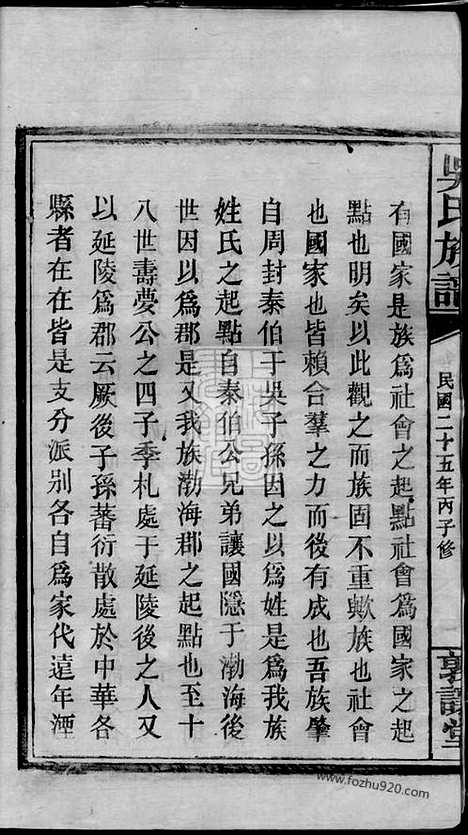 吳氏族譜
民國二十五年丙子修
敦讓堂
有國家是族爲社會之起點社會爲國家之起
點也明矣以此觀之而族固不重歟族也社會
也國家也皆賴合羣之力而後有成也吾族肇
自周封泰伯于吳子孫因之以爲姓是爲我族
姓氏之起點自泰伯公兄弟讓國隱于渤海後
世因以爲郡是又我族渤海郡之起點也至十
八世壽夢公之四子季札處于延陵後之人又
以延陵爲郡云厥後子孫蕃衍散處於中華各
縣者在在皆是支分派別各自爲家代遠年湮
https://www.fozhu920.com/